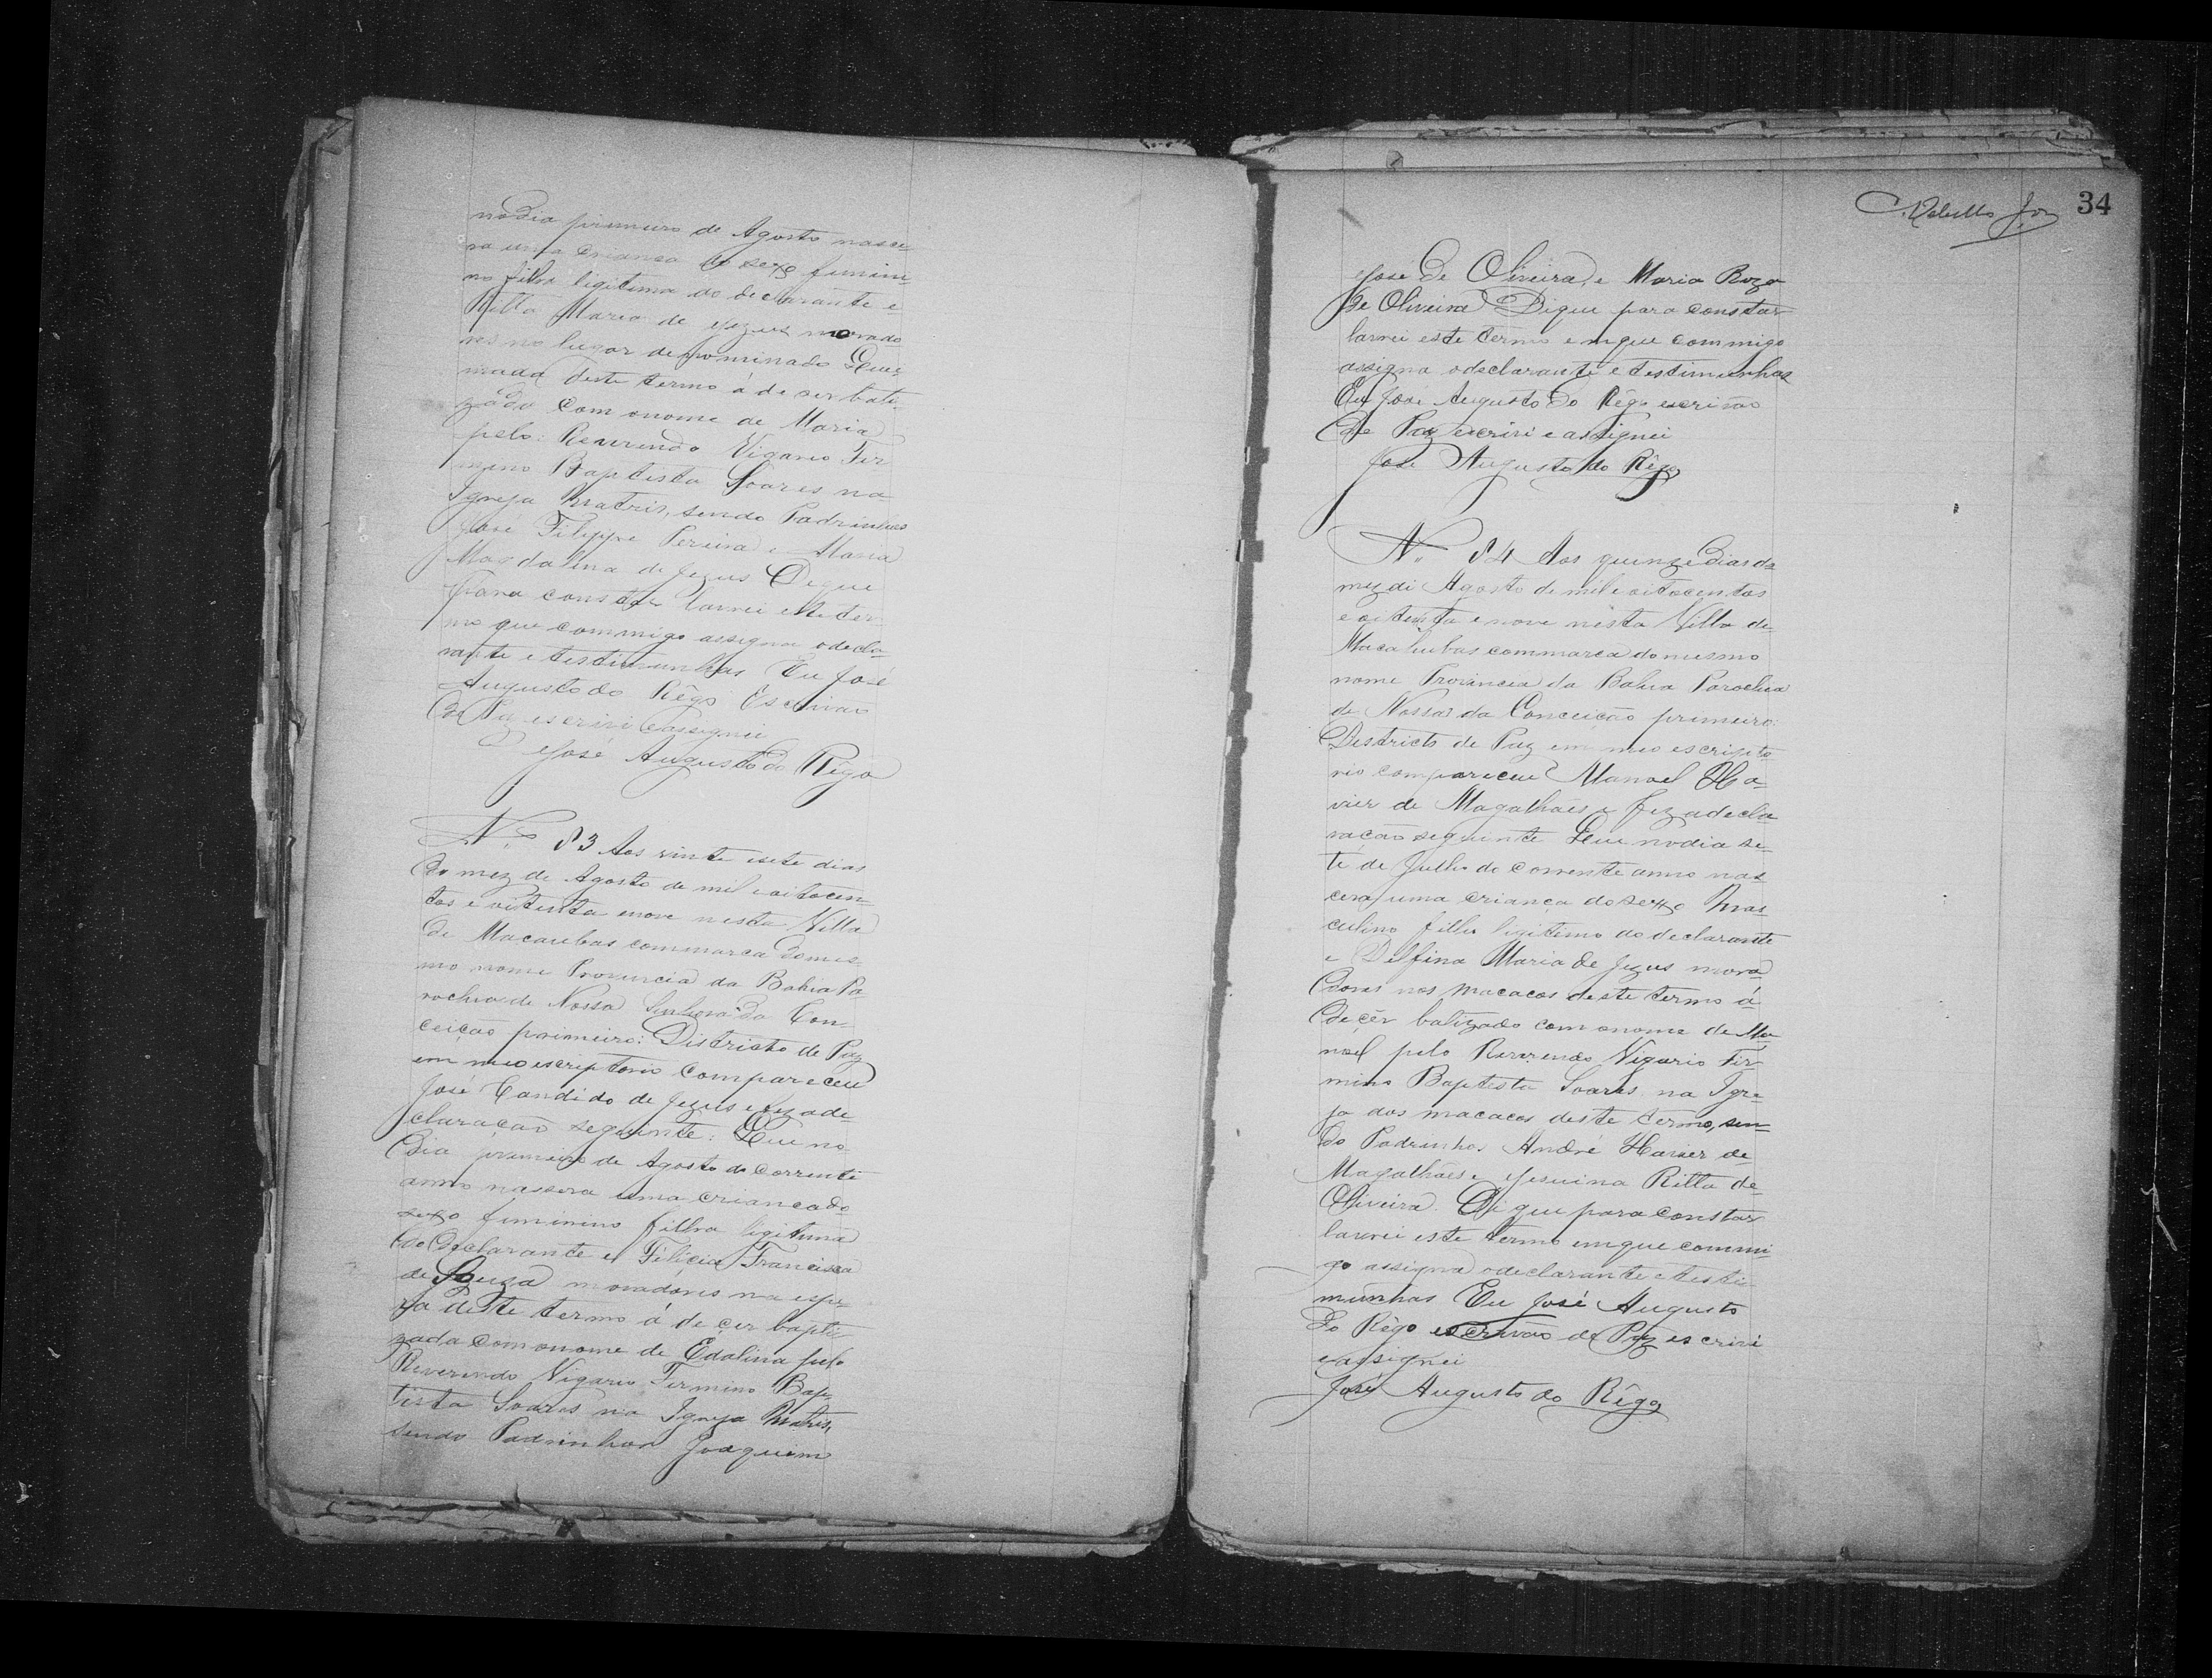 no dia primeiro de Agosto nasce-
ra uma crianca do sexo femini-
no filha legitima do declarante e
Ritta Maria de Jezus morado
res no lugar denominado Quei
mada deste termo á de ser bati-
zado com o nome de Maria
pelo: Reverendo Vigario Fir
mino Baptista Soares na
Igreja Matris, sendo Padrinhos
José Filippe Pereira e Maria
Magdalena de Jezus De que
para constar lavrei este ter
mo que commigo assigna o decla-
rante e testimunhas Eu José
Augusto do Rêgo Escrivão
de Paz escrivi e assignei
José Augusto do Rêgo
N.º 83 Aos vinte esete dias
do mez de Agosto de mil e oitocen-
tos e oitenta enove nesta Villa
de Macaubas commarca do mes-
mo nome Provincia da Bahia Pa-
rochia de Nossa Senhora da Con-
ceição primeiro: Districto de Paz
em meo escriptorio compareceu
José Candido de Jezus e fez a de
claracão seguinte: Que no
dia primeiro de Agosto do corrente
anno nassera uma crianca do
sexo feminino filha ligitima
do declarante e Filicia Francisca
de Souza moradores na espe-
ra deste termo á de çer bapti-
zada com o nome de Edalina pelo
Reverendo Vigario Firmino Bap-
tista Soares na Igreja Matris,
sendo Padrinhos Joaquim
34
José de Oliveira, e Maria Roza
de Oliveira De que para constar
lavrei este termo em que commigo
assigna o declarante e testimunhas
Eu José Augusto do Rêgo escrivão
de Paz escrivi e assignei
José Augusto do Rêgo
N.º 84 Aos quinze dias do
mez di Agosto de mil e oitocentos
e oitenta e nove nesta Villa de
Macahubas commarca do mesmo
nome Provincia da Bahia Parochia
de Nossa da Conceicão primeiro:
Districto de Paz em meo escripto
rio compareceu Manoel Xa-
vier de Magalhães e fez a decla
racão seguinte Que no dia se-
te de Julho do corrente anno nas
cera uma criança do sexo Mas
culino filho ligitimo do declarante
e Delfina Maria de Jezus mora
dores nos macacos deste termo á
de çêr batizado com o nome de Ma-
noel pelo Reverendo Vigario Fir
mino Baptista Soares na Igre-
ja dos macacos deste termo, sen-
do Padrinhos André Xavier de
Magalhães e Jesuina Ritta de
Oliveira. De que para constar
lavrei este termo em que commi-
go assigna o declarante e testi-
munhas Eu José Augusto
do Rêgo escrivão de Paz escrivi
e assignei
José Augusto do Rêgo